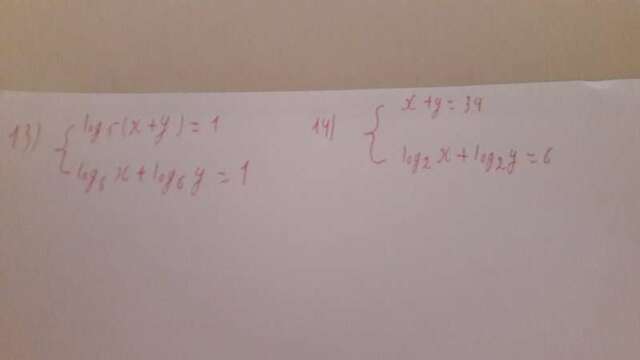 13) { log₅(x+y) = 1
log₆x + log₆y = 1
14) { x+y = 34
log₂x + log₂y = 6